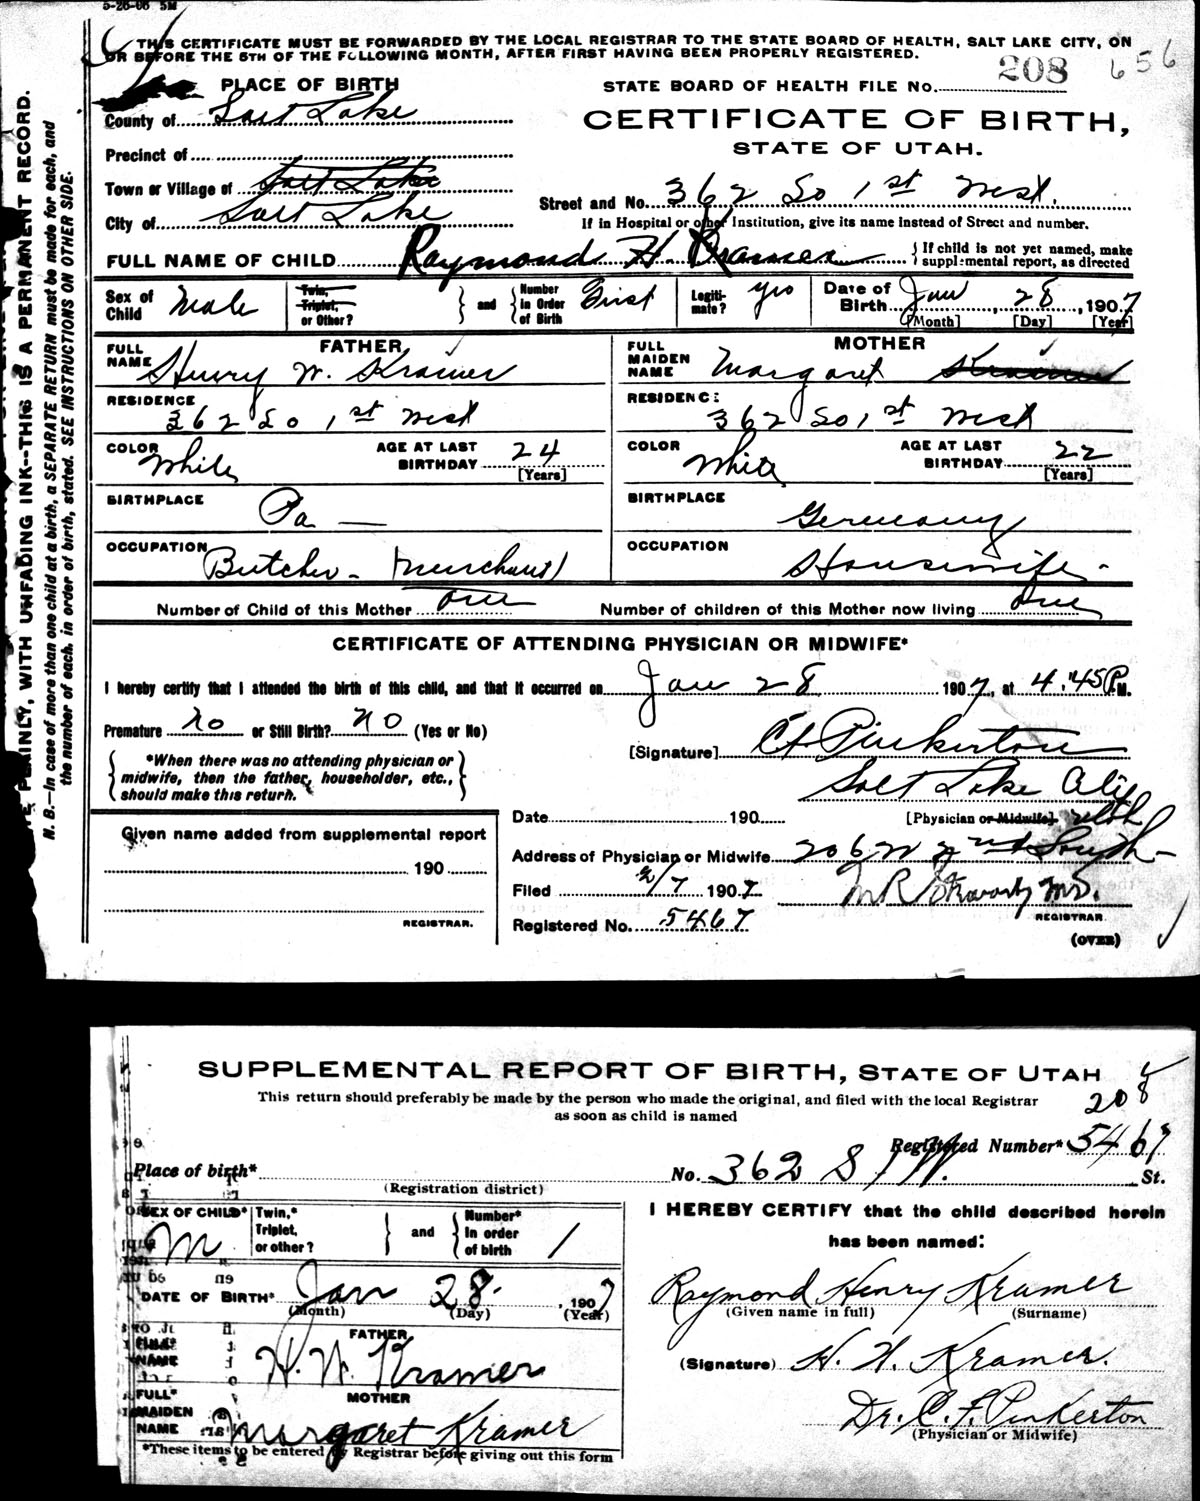 5-26-06 5M
THIS CERTIFICATE MUST BE FORWARDED BY THE LOCAL REGISTRAR TO THE STATE BOARD OF HEALTH, SALT LAKE CITY, ON
OR BEFORE THE 5TH OF THE FOLLOWING MONTH, AFTER FIRST HAVING BEEN PROPERLY REGISTERED.
208 656
PLACE OF BIRTH
STATE BOARD OF HEALTH FILE No.
County of Salt Lake
CERTIFICATE OF BIRTH,
STATE OF UTAH.
Precinct of
Town or Village of Salt Lake
Street and No. 362 So 1st West.
City of Salt Lake
If in Hospital or other Institution, give its name instead of Street and number.
FULL NAME OF CHILD Raymond H. Kramer
If child is not yet named, make
supplemental report, as directed
Sex of Child Male
Twin, Triplet, or Other?
and
Number in Order of Birth First
Legiti- mate? yes
Date of Birth Jan 28, 1907
[Month] [Day] [Year]
FATHER
FULL NAME Henry W. Kramer
MOTHER
FULL MAIDEN NAME Margaret Kramer
RESIDENCE 362 So 1st West
RESIDENCE 362 So 1st West
COLOR White
AGE AT LAST BIRTHDAY 24 [Years]
COLOR White
AGE AT LAST BIRTHDAY 22 [Years]
BIRTHPLACE Pa
BIRTHPLACE Germany
OCCUPATION Butcher - Merchant
OCCUPATION Housewife -
Number of Child of this Mother One
Number of children of this Mother now living One
CERTIFICATE OF ATTENDING PHYSICIAN OR MIDWIFE*
I hereby certify that I attended the birth of this child, and that it occurred on Jan 28 1907, at 4.45 P.M.
Premature no or Still Birth? no (Yes or No)
[Signature] C F Pinkerton
*When there was no attending physician or
midwife, then the father, householder, etc.,
should make this return.
Salt Lake City
Utah
Date 190
[Physician or Midwife]
Given name added from supplemental report
190
REGISTRAR.
Address of Physician or Midwife 206 W 2nd South
Filed 2/7 1907
M.D.
REGISTRAR
Registered No. 5467
(OVER)
PLAINLY, WITH UNFADING INK--THIS IS A PERMANENT RECORD.
N. B.—In case of more than one child at a birth, a SEPARATE RETURN must be made for each, and
the number of each, in order of birth, stated. SEE INSTRUCTIONS ON OTHER SIDE.
SUPPLEMENTAL REPORT OF BIRTH, STATE OF UTAH
This return should preferably be made by the person who made the original, and filed with the local Registrar
as soon as child is named
208
Registered Number* 5467
Place of birth*
No. 362 S 1 W. St.
(Registration district)
SEX OF CHILD* M
Twin,* Triplet, or other?
and
Number* in order of birth 1
I HEREBY CERTIFY that the child described herein
has been named:
DATE OF BIRTH* Jan 28, 1907
(Month) (Day) (Year)
Raymond Henry Kramer
(Given name in full) (Surname)
FATHER
NAME H. W. Kramer
(Signature) H. W. Kramer.
MOTHER
FULL* MAIDEN NAME Margaret Kramer
Dr. C. F. Pinkerton
(Physician or Midwife)
*These items to be entered by Registrar before giving out this form